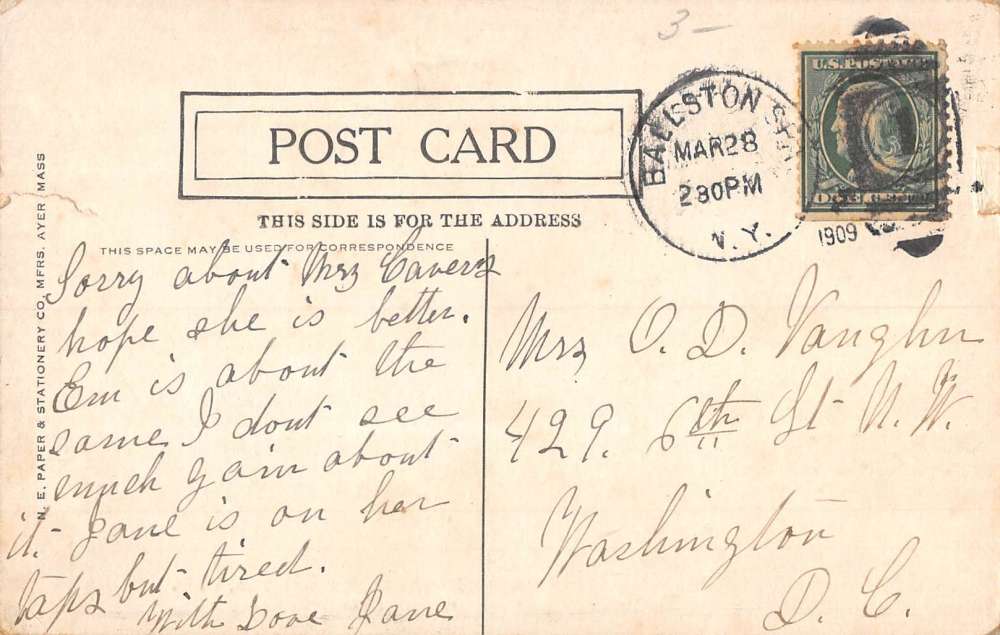 3-
U.S. POSTAGE
BALLSTON SPA
MAR 28
2 30 PM
N.Y.
1909
POST CARD
THIS SIDE IS FOR THE ADDRESS
THIS SPACE MAY BE USED FOR CORRESPONDENCE
N. E. PAPER & STATIONERY CO. MFRS. AYER MASS
Sorry about Mrs Cavers
hope she is better.
Em is about the
same I dont see
much gain about
it. Jane is on her
taps but tired.
With Love Jane
Mrs O. D. Vaughn
429. 6th St N.W.
Washington
D. C.